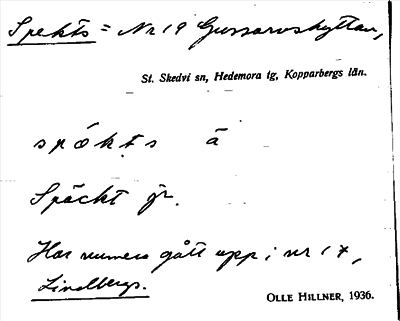 Spekts = Nr 19 Gussarvshyttan,
St. Skedvi sn, Hedemora tg, Kopparbergs län.
spǿkt s ä
Späckt jr.
Har numera gått upp i nr 17,
Lindbergs.
OLLE HILLNER, 1936.